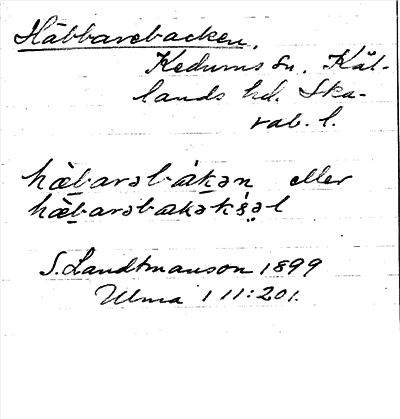 Häbbarebacken.
Kedums sn. Kål-
lands hd. Ska-
rab. l.
hæ̀barəbákən eller
hæ̀barəbakək
S. Landtmanson 1899
Ulma 111:201.